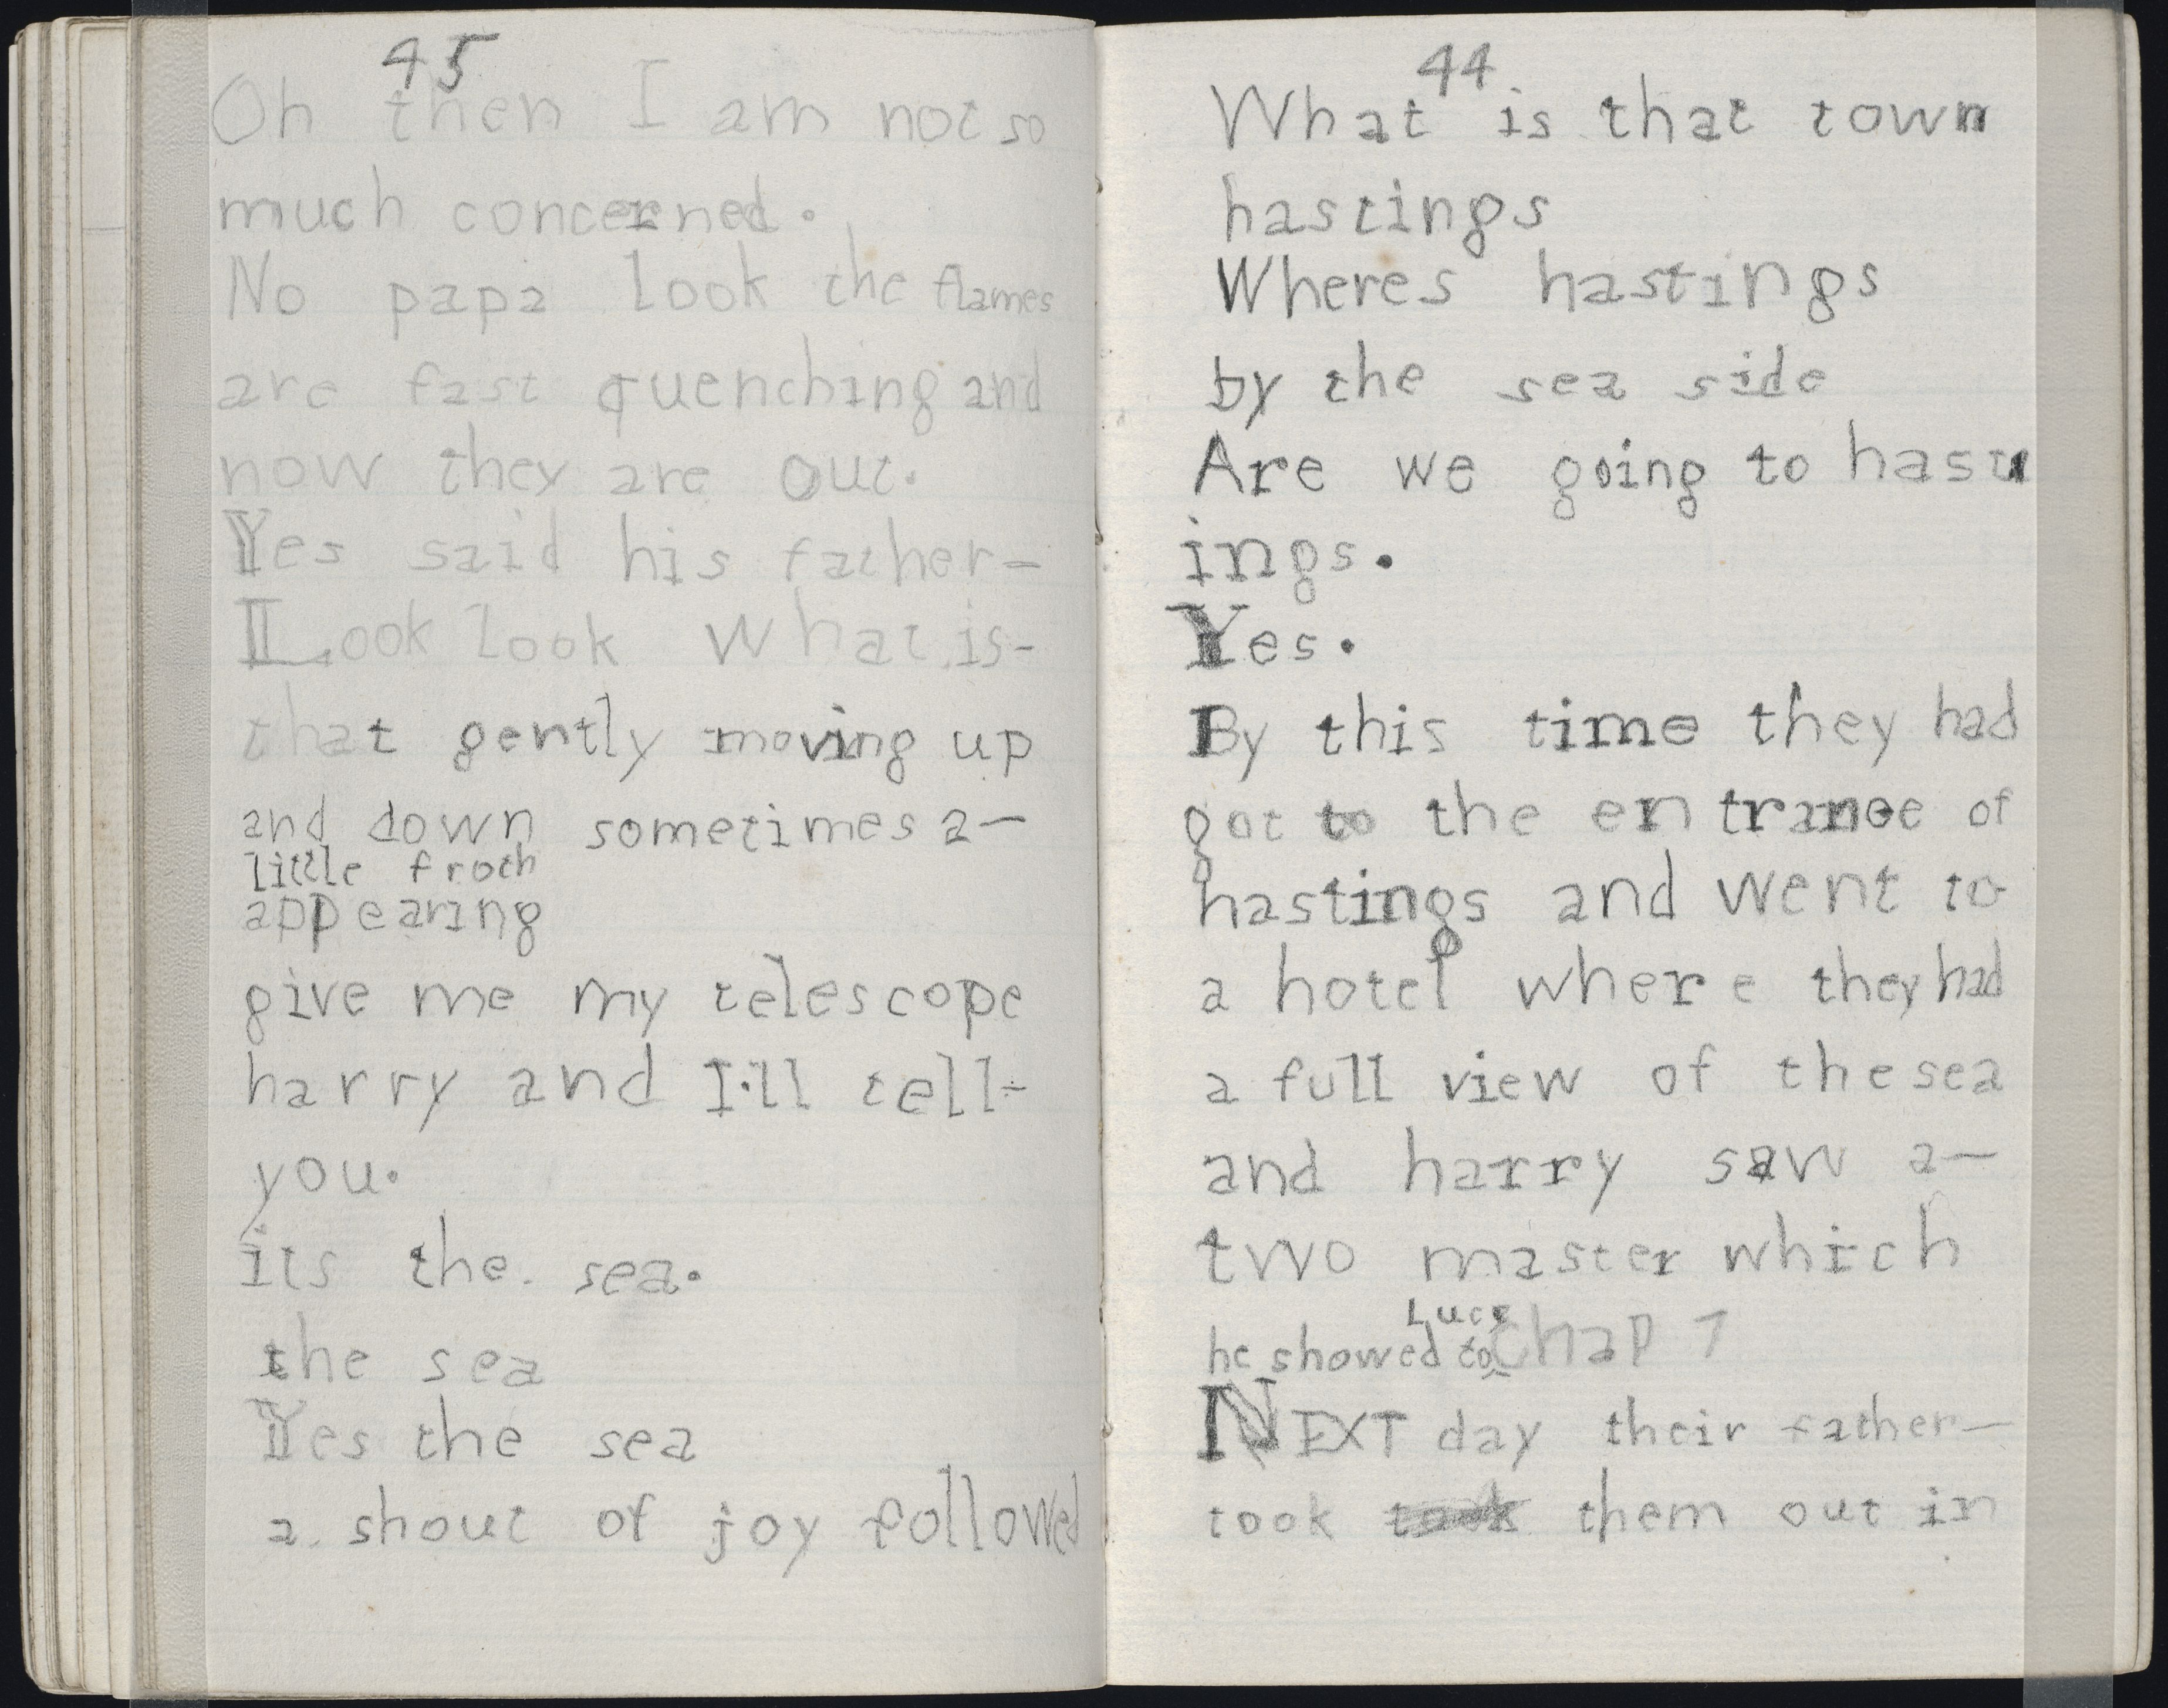 45
Oh then I am not so
much concerned.
No papa look the flames
are fast quenching and
now they are out.
Yes said his father-
Look look what is-
that gently moving up
and down sometimes a-
little froth
appearing
give me my telescope
harry and I'll tell-
you.
its the sea.
the sea
Yes the sea
a shout of joy followed
44
What is that town
hastings
Wheres hastings
by the sea side
Are we going to hast
ings.
Yes.
By this time they had
got to the entrance of
hastings and went to
a hotel where they had
a full view of the sea
and harry saw a-
two master which
he showed to Lucy
Chap 7
NEXT day their father-
took took them out in